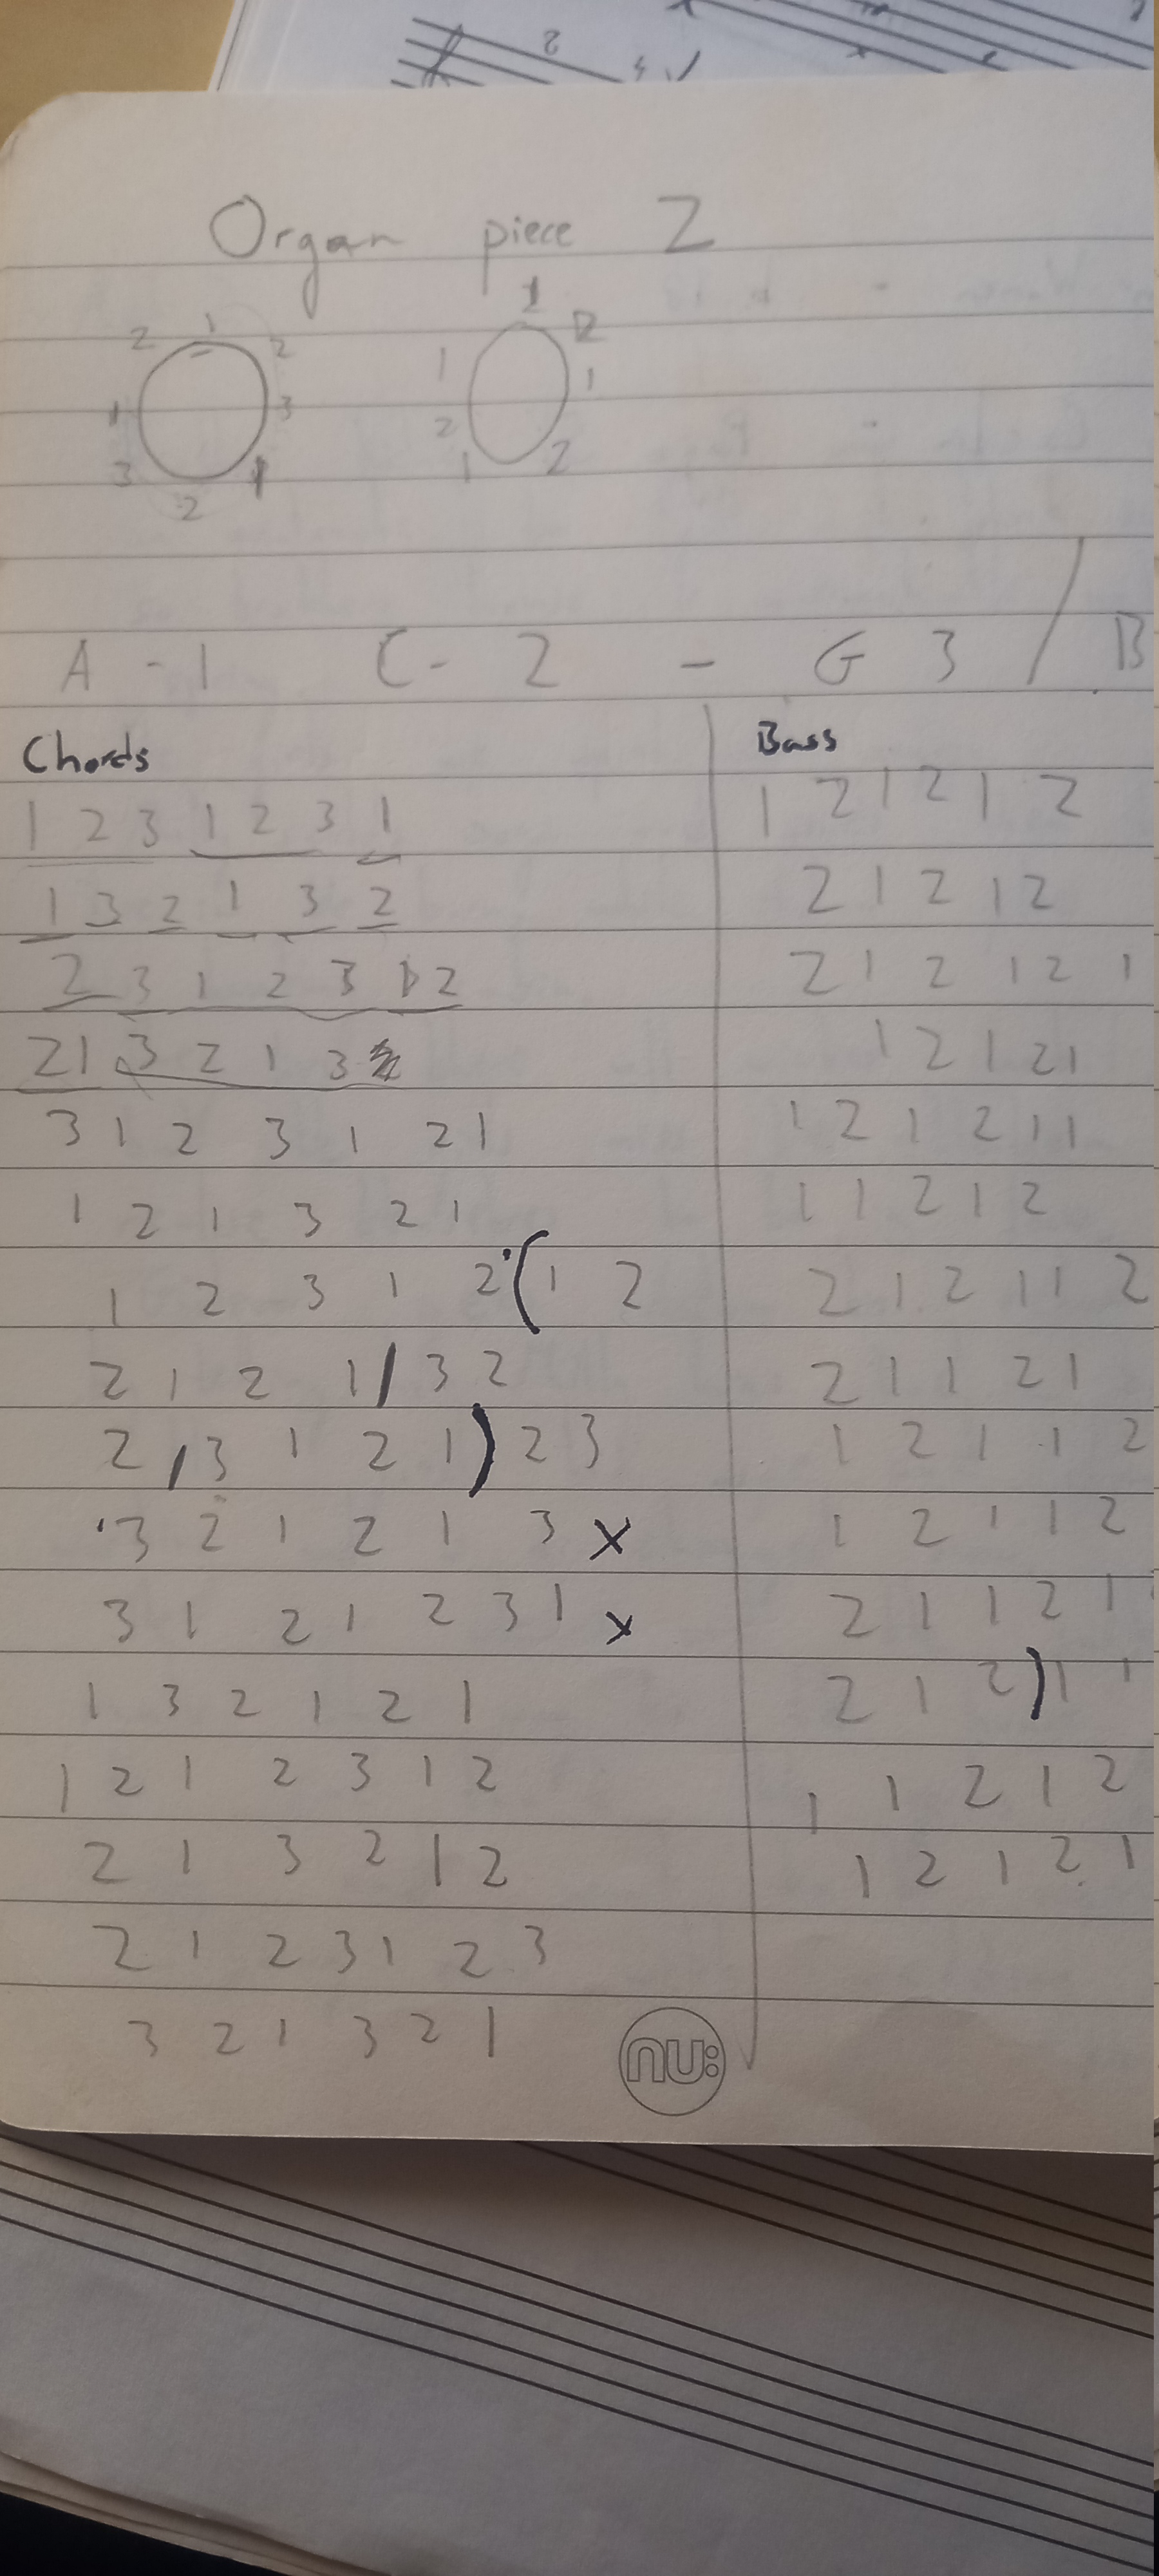 Organ piece 2
1
2 1 2
1 3
3 1
2
1
1 2
1
2 2
1
A - 1 C - 2 - G 3 / B
Chords
1 2 3 1 2 3 1
1 3 2 1 3 2
2 3 1 2 3 1 2
2 1 3 2 1 3
3 1 2 3 1 2 1
1 2 1 3 2 1
1 2 3 1 2 ( 1 2
2 1 2 1 / 3 2
2 , 3 1 2 1 ) 2 3
3 2 1 2 1 3 x
3 1 2 1 2 3 1 x
1 3 2 1 2 1
1 2 1 2 3 1 2
2 1 3 2 1 2
2 1 2 3 1 2 3
3 2 1 3 2 1
Bass
1 2 1 2 1 2
2 1 2 1 2
2 1 2 1 2 1
1 2 1 2 1
1 2 1 2 1 1
1 1 2 1 2
2 1 2 1 1 2
2 1 1 2 1
1 2 1 1 2
1 2 1 1 2
2 1 1 2 1
2 1 2 ) 1 1
1 1 2 1 2
1 2 1 2 1
nu: